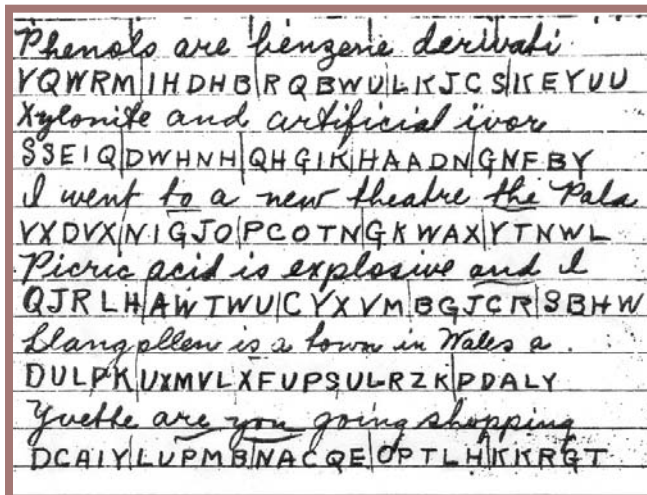 Phenols are benzene derivati
VQWRM|IHDHB|RQBWU|LKJCS|KEYUU
Xylonite and artificial ivor
SSEIQ|DWHNH|QHGIK|HAADN|GNFBY
I went to a new theatre the Pala
VXDVX|NIGJO|PCOTN|GKWAX|YTNWL
Picric acid is explosive and I
QJRLH|AWTWU|CYXVM|BGJCR|SBHW
Llangollen is a town in Wales a
DULPK|UXMVL|XFUPSULRZK|PDALY
Yvette are you going shopping
DCAIY|LUPMB|NACQE|OPTLH|KKRGT